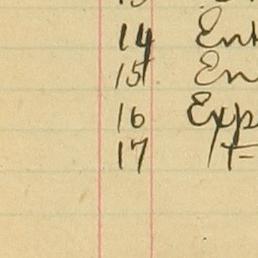 14 Ent
15 En
16 Exp
17